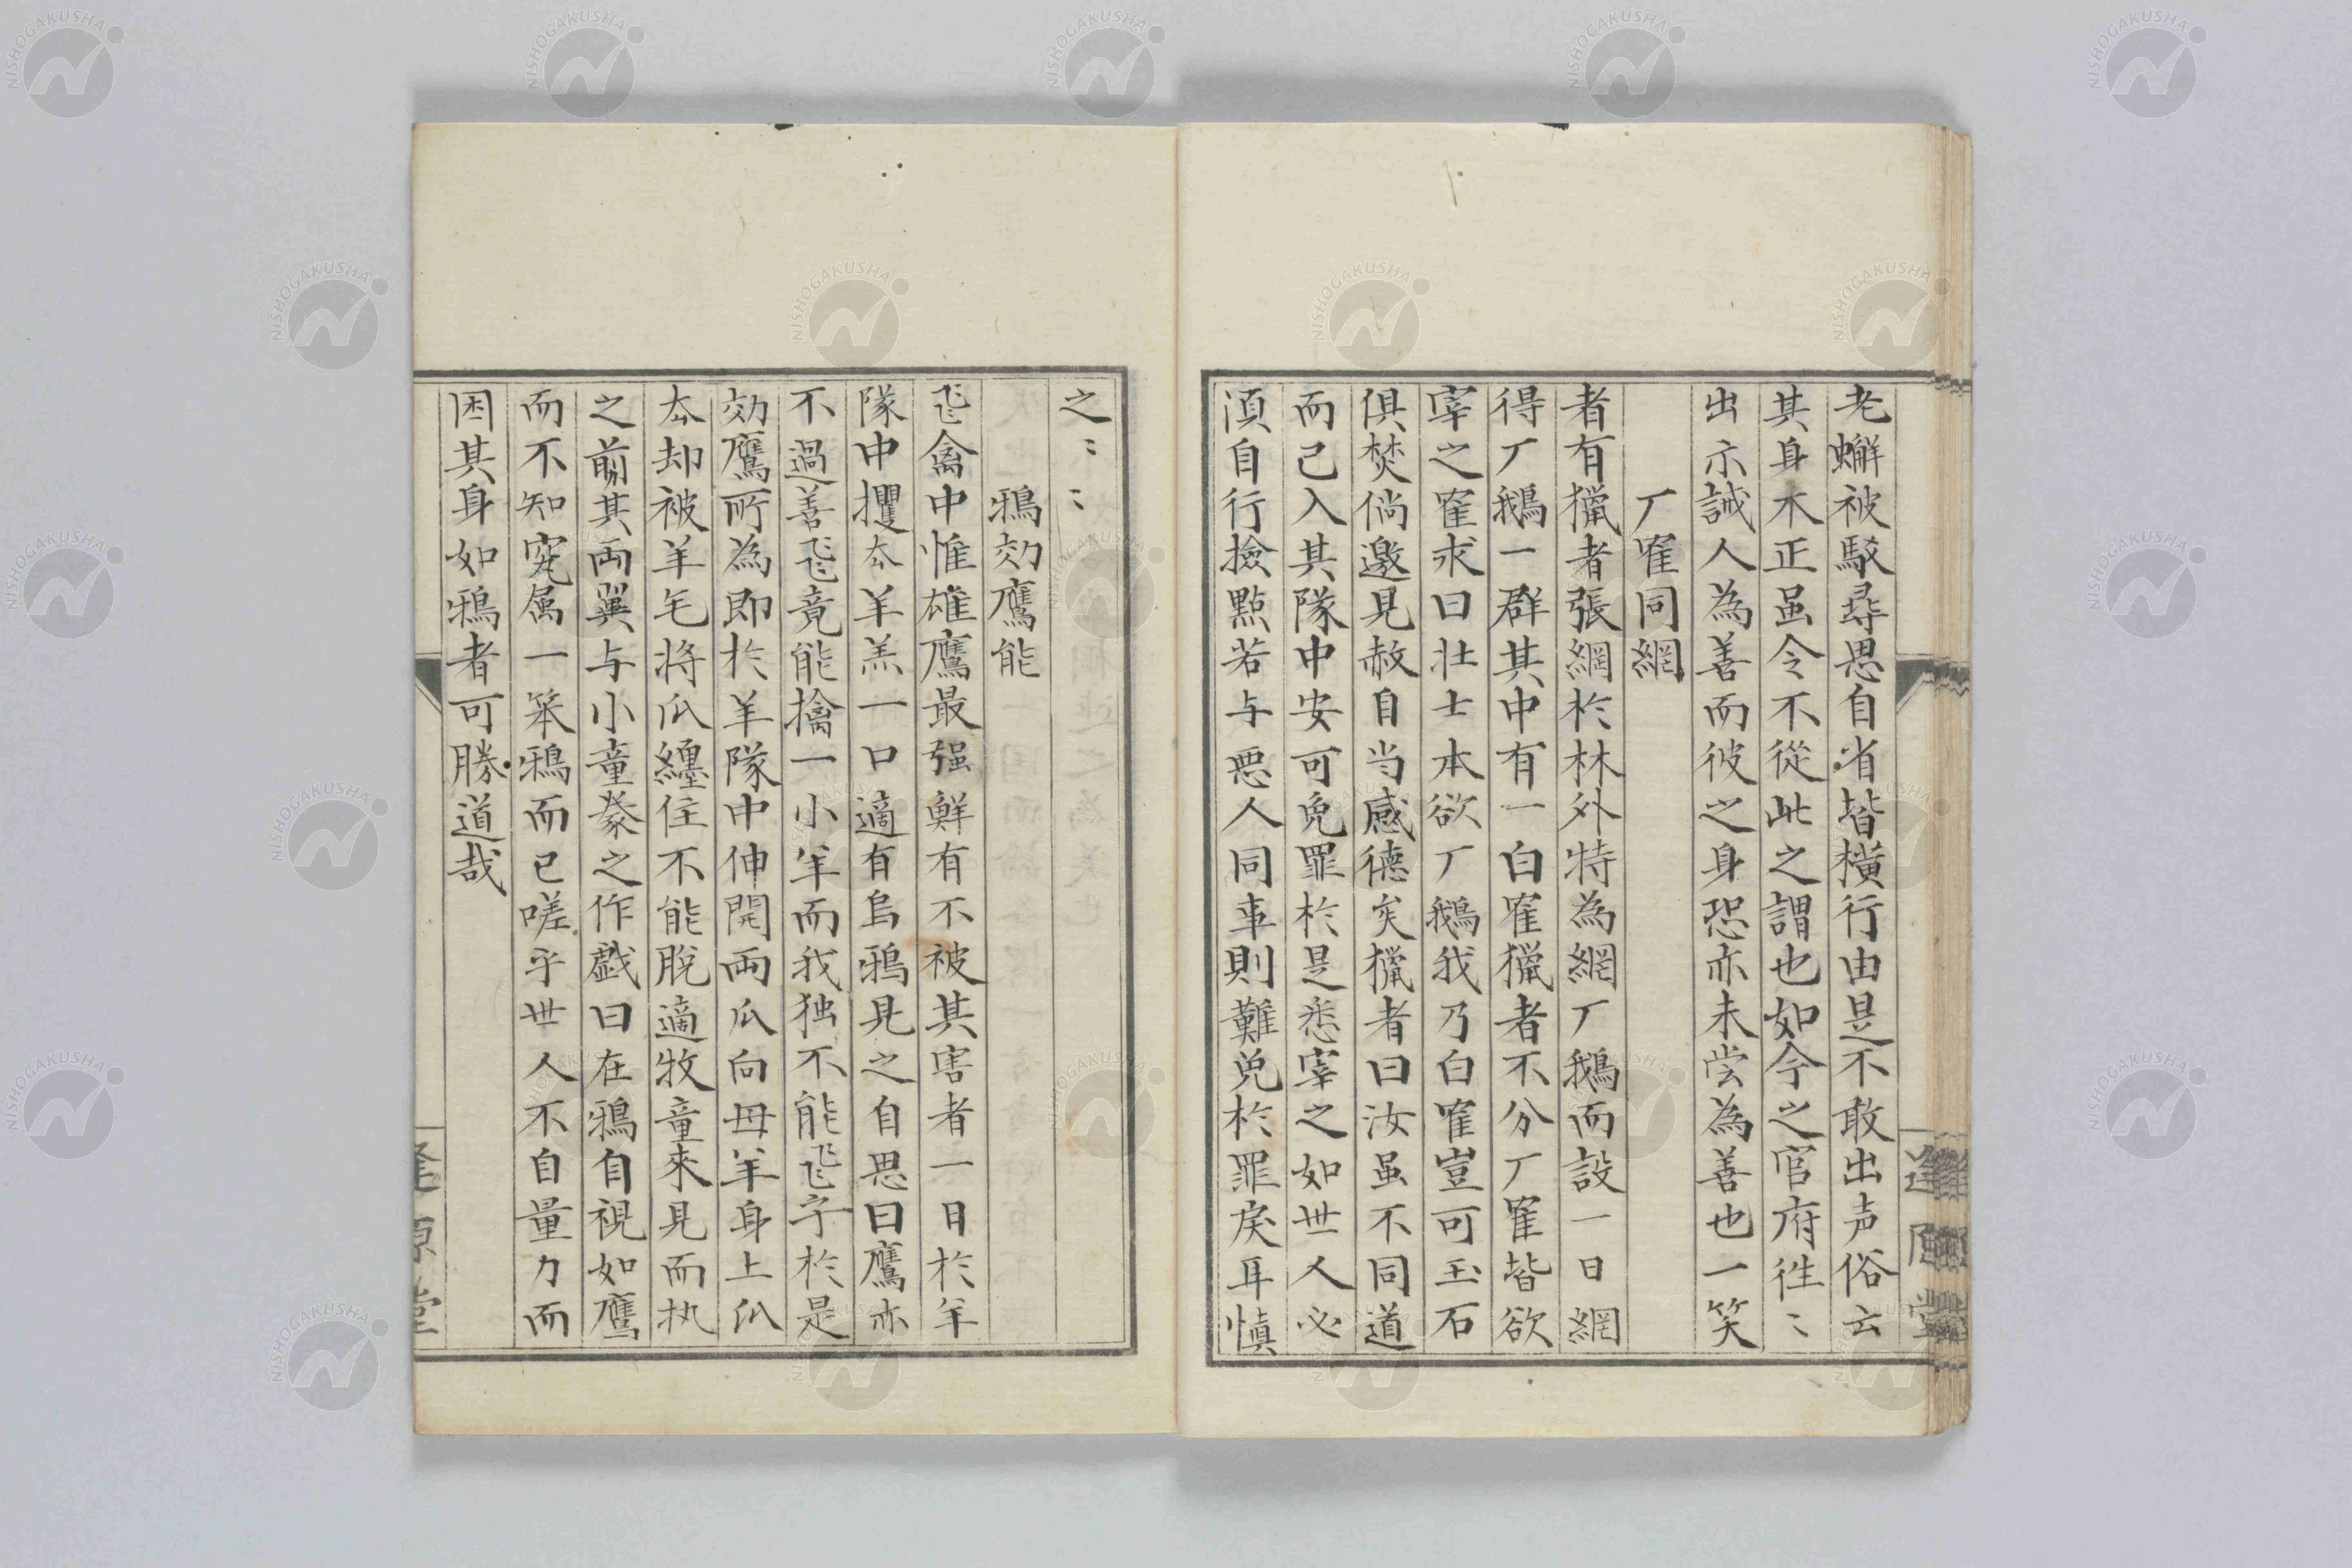 老蠏被駁尋思自省皆橫行由是不敢出声俗云
其身不正虽令不從此之謂也如今之官府徃〻
出示誡人為善而彼之身恐亦未尝為善也一笑
厂寉同網
者有獵者張網於林外特為網厂鵝而設一日網
得厂鵝一群其中有一白寉獵者不分厂寉皆欲
宰之寉求曰壮士本欲厂鵝我乃白寉豈可玉石
俱焚倘邀見赦自当感德矣獵者曰汝虽不同道
而已入其隊中安可免罪於是悉宰之如世人必
湏自行撿點若与恶人同事則難免於罪戾耳慎
之〻〻
鴉効鷹能
飞禽中惟雄鷹最强鮮有不被其害者一日於羊
隊中攫去羊羔一口適有烏鴉見之自思曰鷹亦
不過善飞竟能擒一小羊而我独不能飞乎於是
効鷹所為即於羊隊中伸開兩爪向母羊身上爪
去却被羊毛将爪纏住不能脫適牧童來見而执
之剪其両翼与小童豢之作戲曰在鴉自視如鷹
而不知究属一笨鴉而已嗟乎世人不自量力而
困其身如鴉者可勝道哉
逢原堂
逢原堂
NISHOGAKUSHA